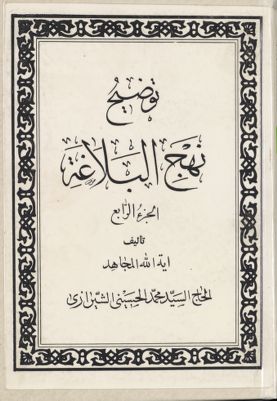 توضيح
نهج البلاغة
الجزء الرابع
تاليف
اية الله المجاهد
الحاج السيد محمد الحسيني الشيرازي